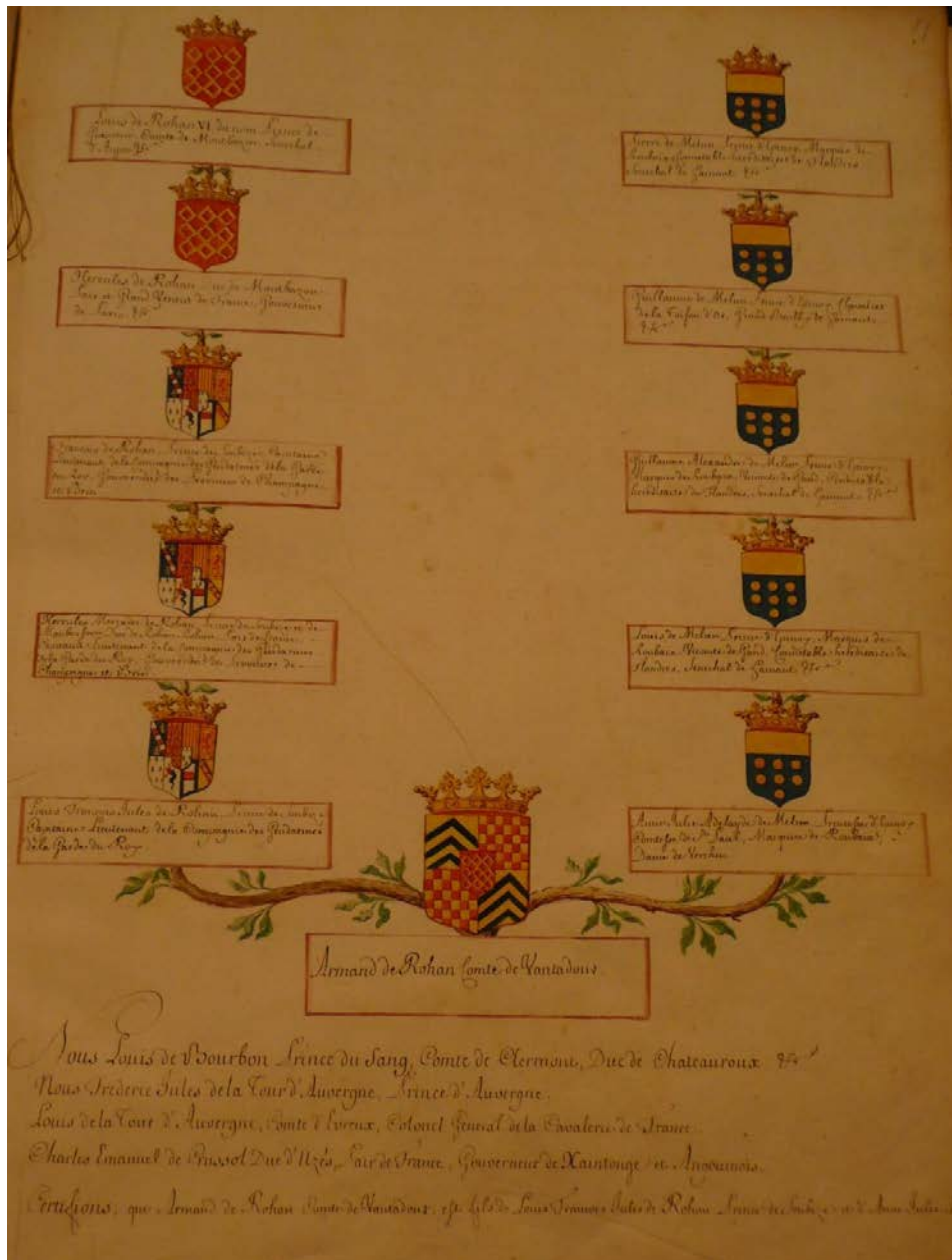 Louis de Rohan VI du nom Prince de
Guemené, Comte de Montbazon, Senechal
d'Anjou &c
Hercules de Rohan Duc de Montbazon
Pair et Grand Veneur de France, Gouverneur
de Paris, &c
François de Rohan Prince de Soubize, Capitaine
Lieutenant de la Compagnie des Gendarmes de la Garde
du Roy, Gouverneur des Provinces de Champagne
et Brie
Hercules Meriadec de Rohan, Prince de Soubize
Duc de Rohan Rohan, Pair de France
Lieutenant de la Compagnie des Gendarmes
de la Garde du Roy, Gouverneur des Provinces de
Champagne et Brie
Louis François Jules de Rohan Prince de Soubize
Capitaine Lieutenant de la Compagnie des Gendarmes
de la Garde du Roy
Pierre de Melun Prince d'Epinoy, Marquis de
Roubaix Connetable hereditaire de Flandres
Senechal de Hainaut &c
Guillaume de Melun Prince d'Epinoy, Chevalier
de la Toison d'Or, Grand Bailly de Hainaut
&c
Guillaume Alexandre de Melun Prince d'Epinoy
Marquis de Roubaix, Vicomte de Gand, Connetable
hereditaire de Flandres, Senechal de Hainaut &c
Louis de Melun Prince d'Epinoy, Marquis de
Roubaix Vicomte de Gand, Connetable hereditaire de
Flandres, Senechal de Hainaut &c
Anne Julie Adelayde de Melun Princesse d'Epinoy
Comtesse de St. Paul, Marquise de Roubaix,
Dame de Verchin
Armand de Rohan Comte de Vantadour
Nous Louis de Bourbon Prince du Sang, Comte de Clermont, Duc de Chateauroux &c
Nous Frederic Jules de la Tour d'Auvergne, Prince d'Auvergne.
Louis de la Tour d'Auvergne, Comte d'Evreux, Colonel General de la Cavalerie de France
Charles Emanuel de Crussol Duc d'Uzés, Pair de France, Gouverneur de Xaintonge et Angoumois.
Certifions, que Armand de Rohan Comte de Vantadour, est fils de Louis François Jules de Rohan Prince de Soubize et d'Anne Julie